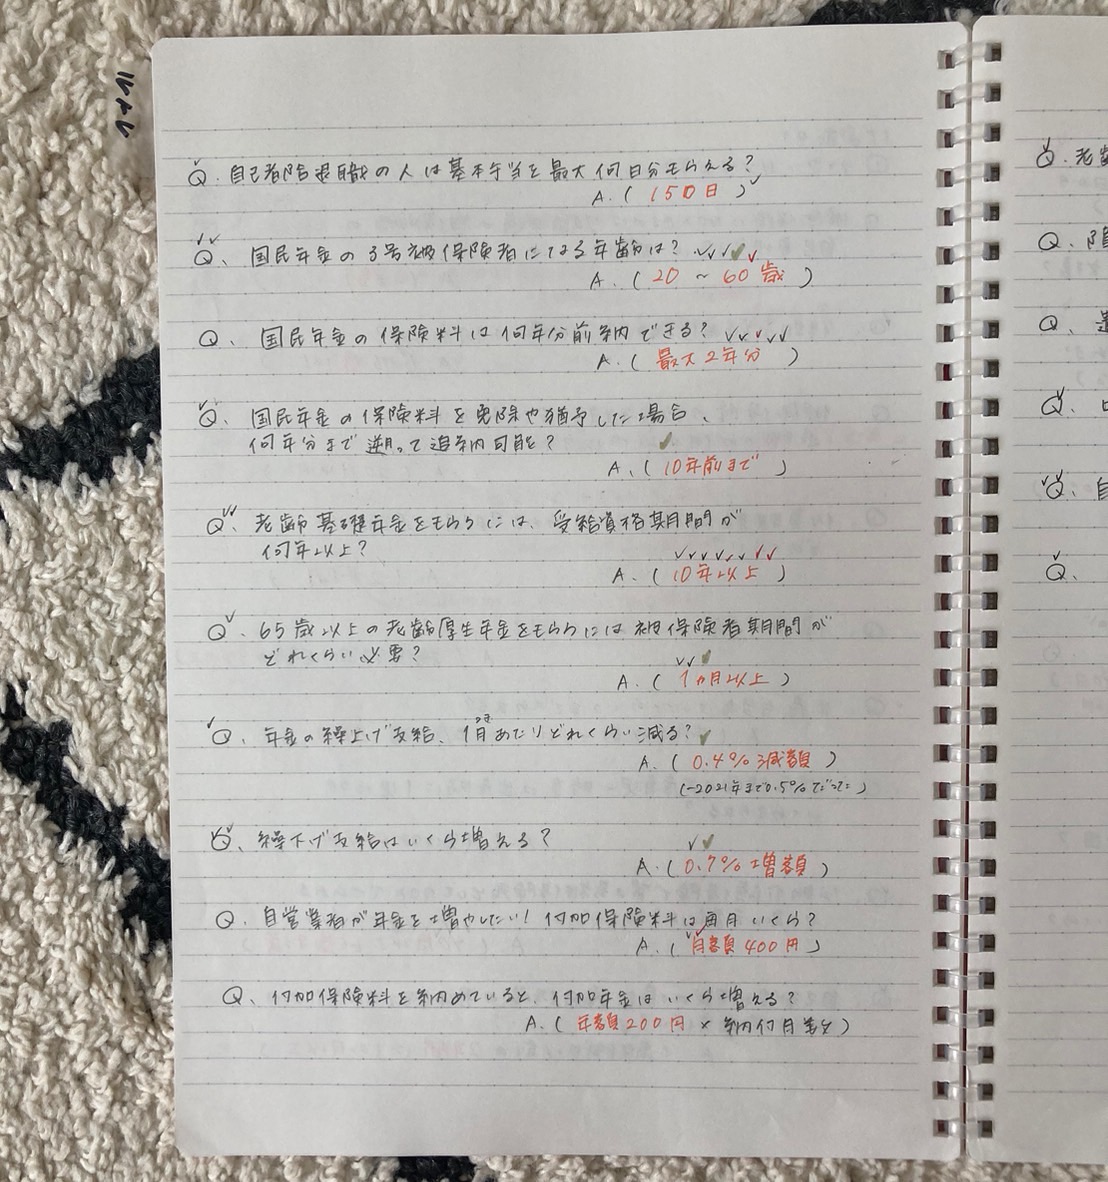 Q. 自己都合退職の人は基本手当を最大何日分もらえる?
A. (150日)
Q、国民年金の3号被保険者になる年齢は?
A. (20 ~ 60歳)
Q、国民年金の保険料は何年分前納できる?
A. (最大2年分)
Q、国民年金の保険料を免除や猶予した場合、
何年分まで遡って追納可能?
A、(10年前まで)
Q、老齢基礎年金をもらうには、受給資格期間が
何年以上?
A. (10年以上)
Q、65歳以上の老齢厚生年金をもらうには被保険者期間が
どれくらい必要?
A. (1ヵ月以上)
Q、年金の繰上げ支給、1月あたりどれくらい減る?
つき
A. (0.4%減額)
(~2021年まで0.5%だった)
Q、繰下げ支給はいくら増える?
A. (0.7%増額)
Q. 自営業者が年金を増やしたい! 付加保険料は毎月いくら?
A. (月額400円)
Q、付加保険料を納めていると、付加年金はいくら増える?
A. (年額200円 × 納付月数)
Q. 老
Q.
Q、
Q、
Q、自
Q、